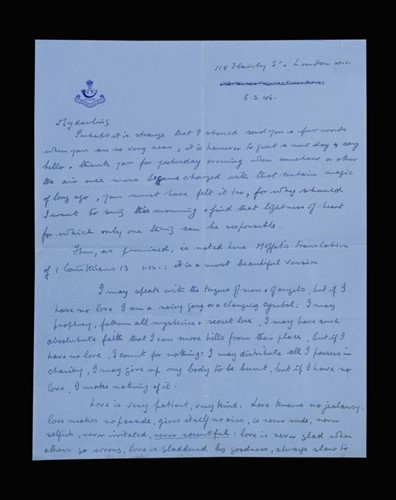 118 Harley St. London W.1.
5.3.46.
My darling
Perhaps it is strange that I should send you a few words
when you are so very near, it is however to greet a new day & say
hello & thank you for yesterday evening when somehow or other
the air once more became charged with that certain magic
of long ago, you must have felt it too, for why should
I want to sing this morning & find that lightness of heart
for which only one thing can be responsible.
Then, as promised, is noted here Moffat's translation
of 1 Corinthians 13 it is a most beautiful version
I may speak with the tongues of men & of angels, but if I
have no love I am a noisy gong or a clanging cymbal: I may
prophesy, fathom all mysteries & secret love, I may have such
absolute faith that I can move hills from their place, but if I
have no love, I count for nothing: I may distribute all I possess in
charity, I may give up my body to be burnt, but if I have no
love, I make nothing of it.
Love is very patient, very kind. Love knows no jealousy:
love makes no parade, gives itself no airs, is never rude, never
selfish, never irritated, never resentful: love is never glad when
others go wrong, love is gladdened by goodness, always slow to